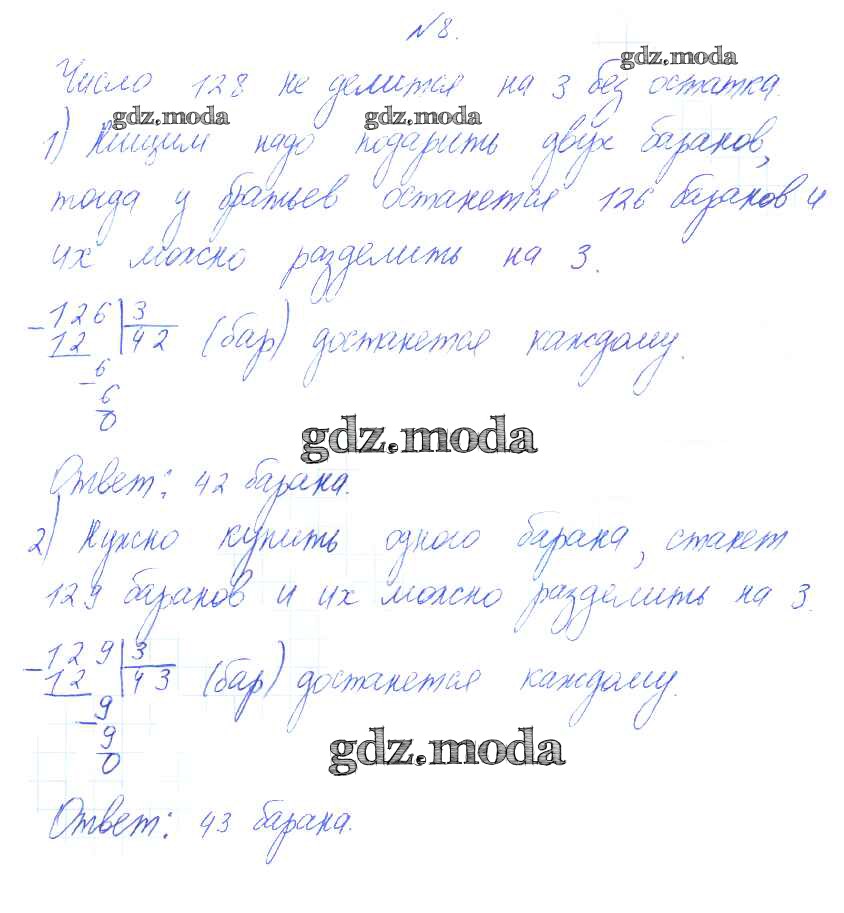 №8.
gdz.moda
Число 128 не делится на 3 без остатка.
gdz.moda gdz.moda
1) Нищим надо подарить двух баранов,
тогда у братьев останется 126 баранов и
их можно разделить на 3.
- 126 | 3
12 42 (бар) достанется каждому.
- 6
6
0
gdz.moda
Ответ: 42 барана.
2) Нужно купить одного барана, станет
129 баранов и их можно разделить на 3.
- 129 | 3
12 43 (бар) достанется каждому.
- 9
9
0
gdz.moda
Ответ: 43 барана.